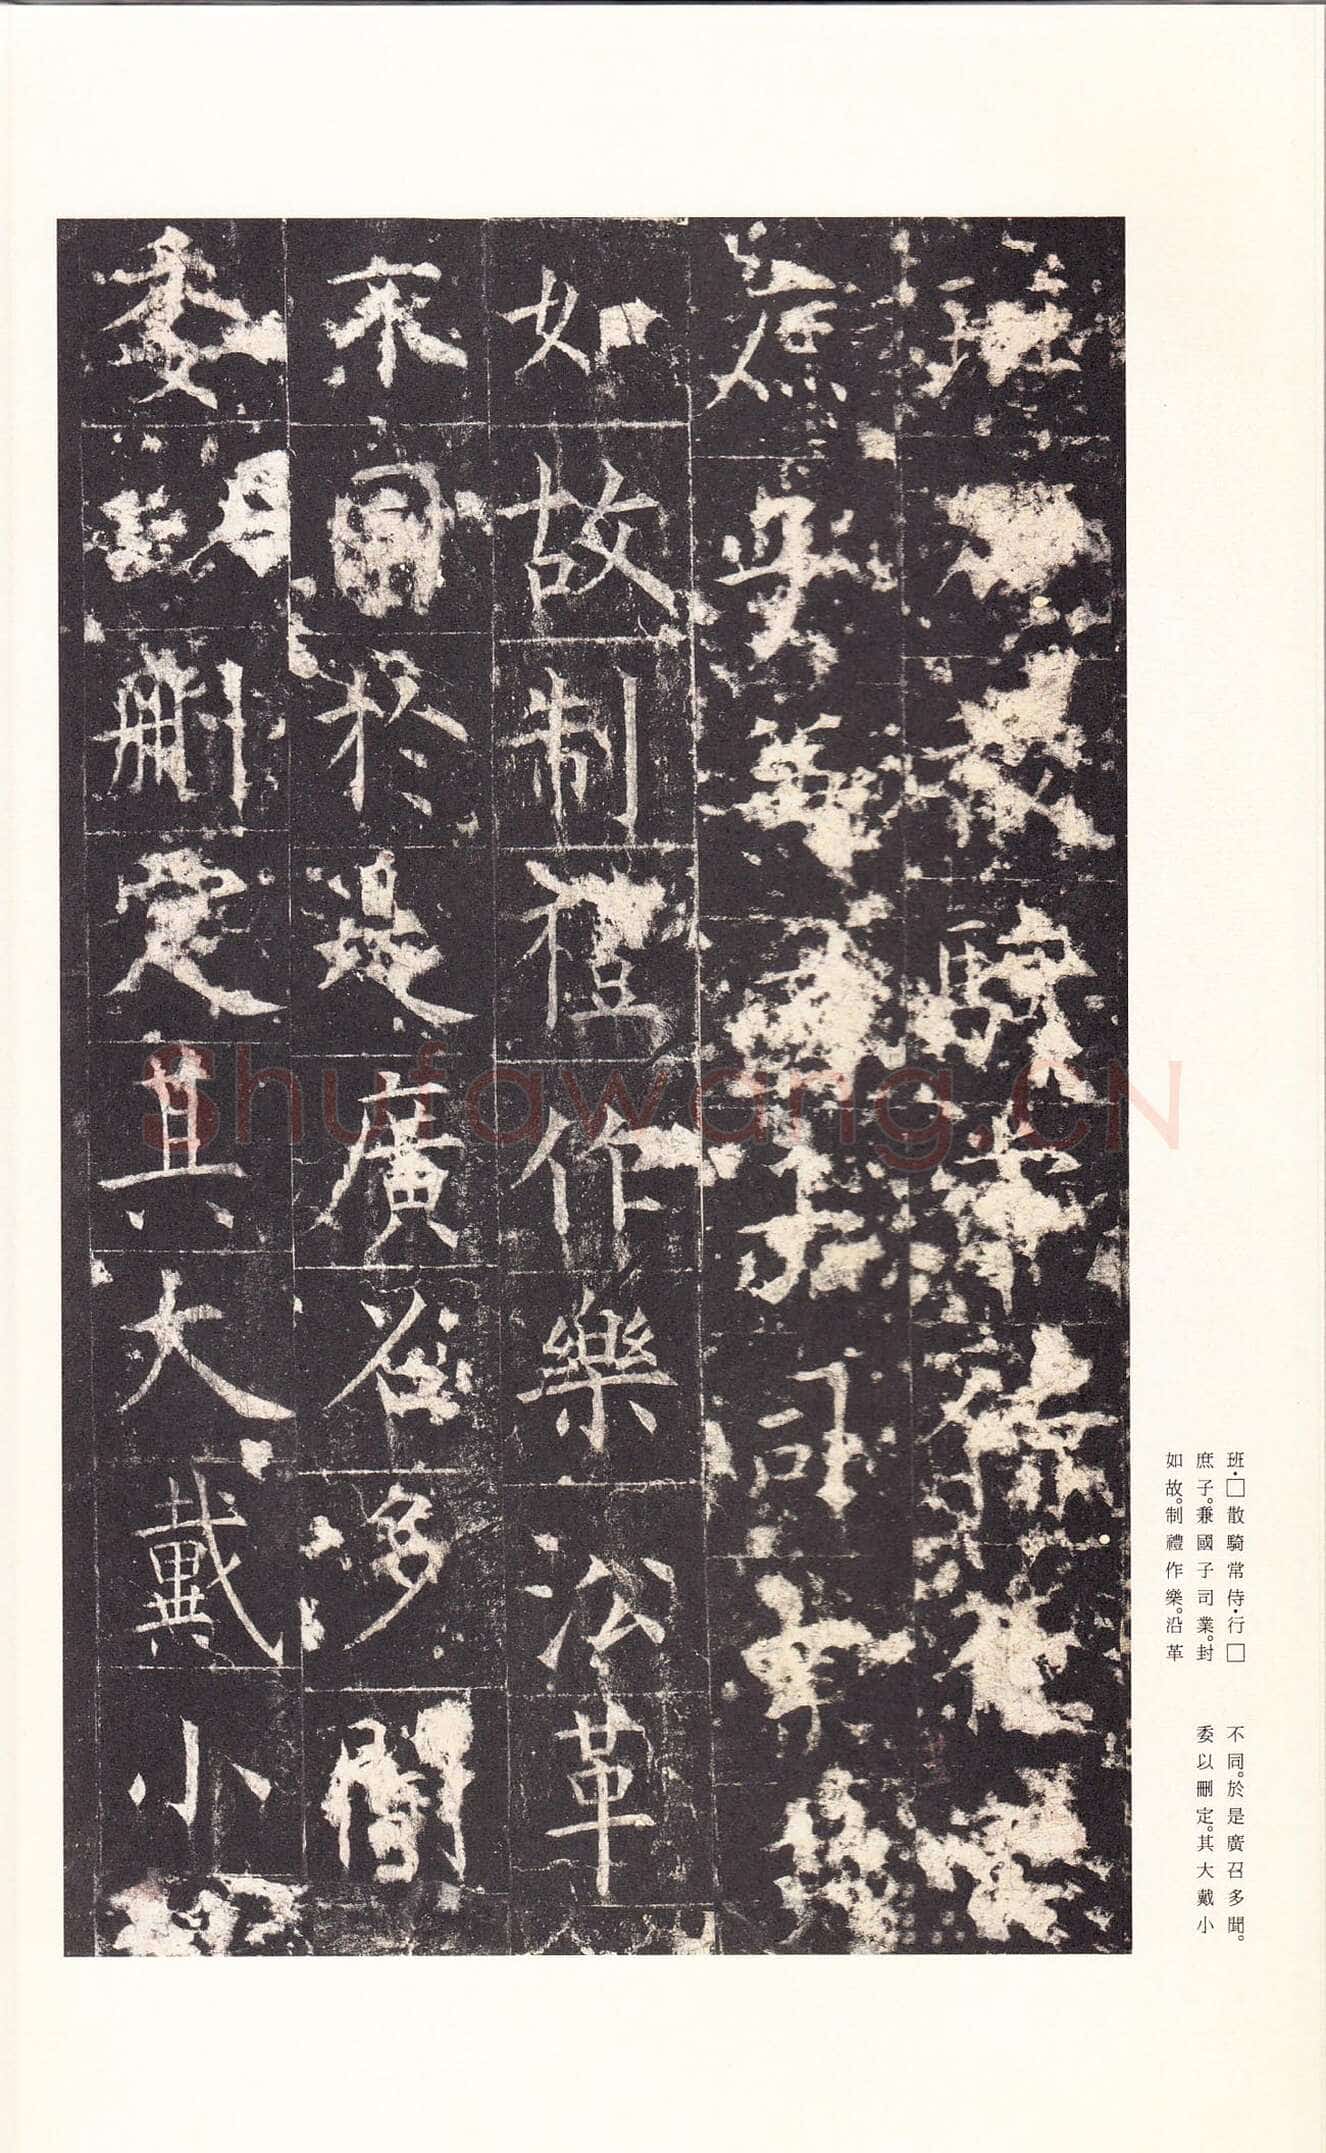 班散騎常侍行
庶子兼國子司業封
如故制禮作樂沿革
不同於是廣召多聞
委以刪定其大戴小
班·□散騎常侍·行□
庶子。兼國子司業。封
如故。制禮作樂。沿革
不同。於是廣召多聞。
委以刪定。其大戴小
Shufawang.CN